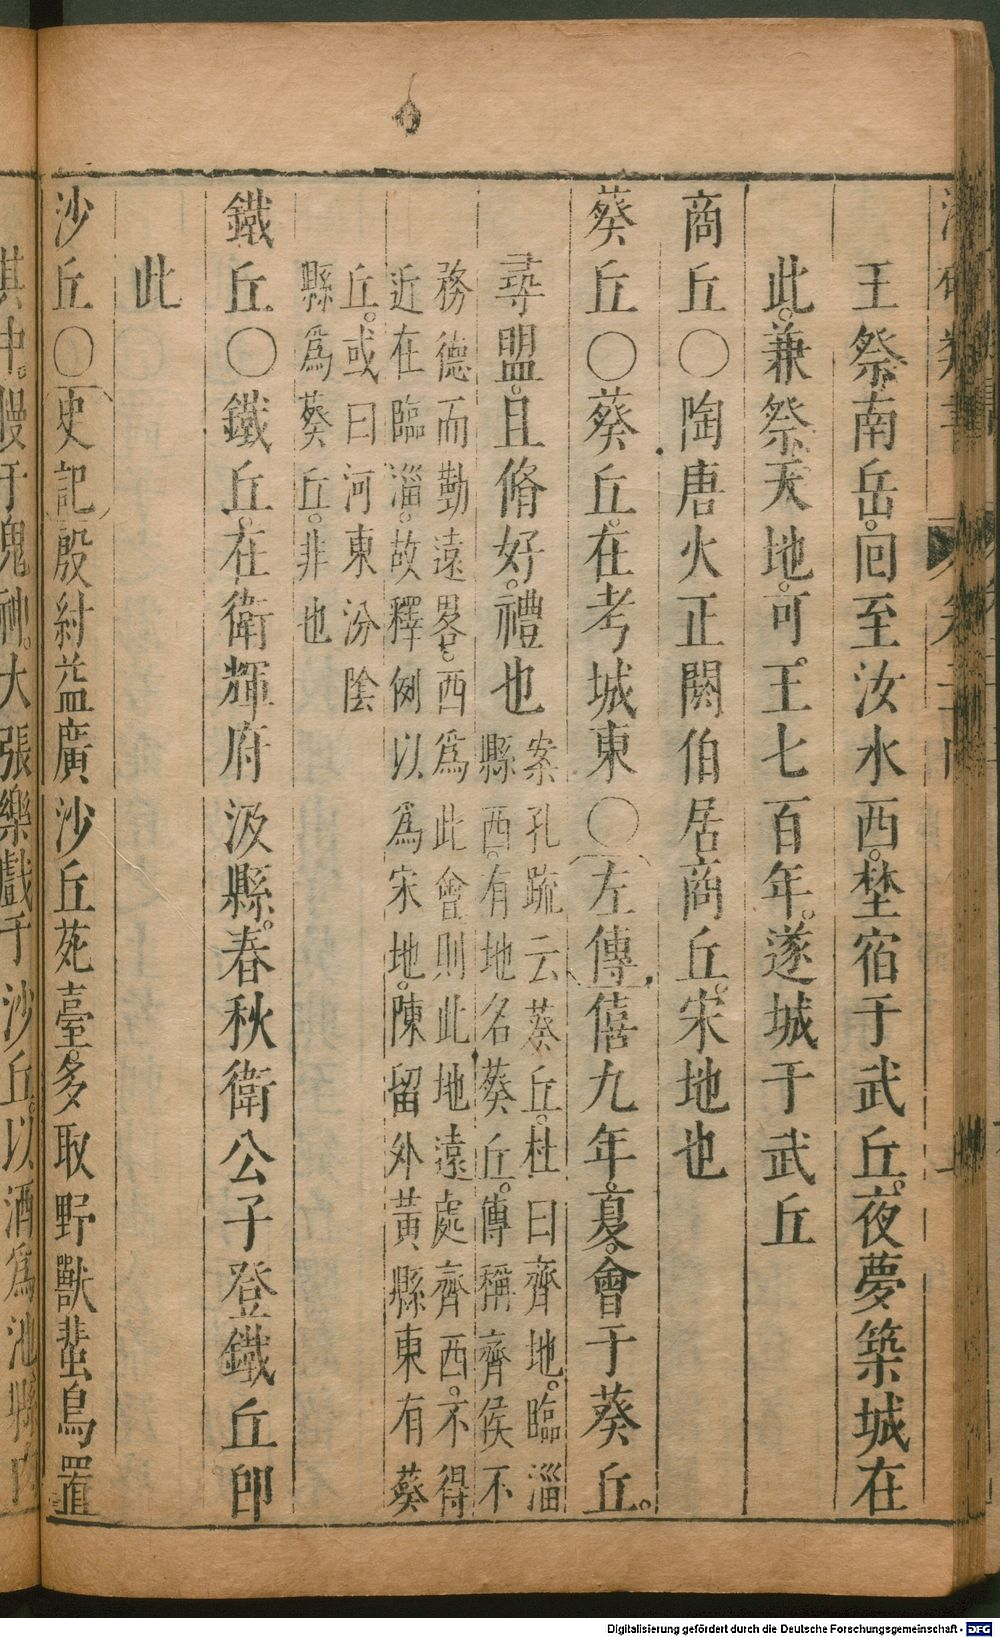 王祭南岳。囘至汝水西。埜宿于武丘。夜夢築城在
此。兼祭天地。可王七百年。遂城于武丘
商丘〇陶唐火正閼伯居商丘。宋地也
葵丘〇葵丘。在考城東〇左傳僖九年。夏。會于葵丘。
尋盟。且脩好。禮也
案孔疏云葵丘。杜曰齊地。臨淄
縣西。有地名葵丘。傳稱齊侯不
務德而勤遠畧。西爲此會則此地遠處齊西。不得
近在臨淄。故釋例以爲宋地。陳留外黃縣東有葵
丘。或曰河東汾陰
縣爲葵丘。非也
鐵丘〇鐵丘。在衛輝府汲縣。春秋衛公子登鐵丘卽
此
沙丘〇史記殷紂益廣沙丘苑臺。多取野獸蜚鳥置
其中。慢于鬼神。大張樂戲于沙丘。以酒爲池縣肉
Digitalisierung gefördert durch die Deutsche Forschungsgemeinschaft - DFG